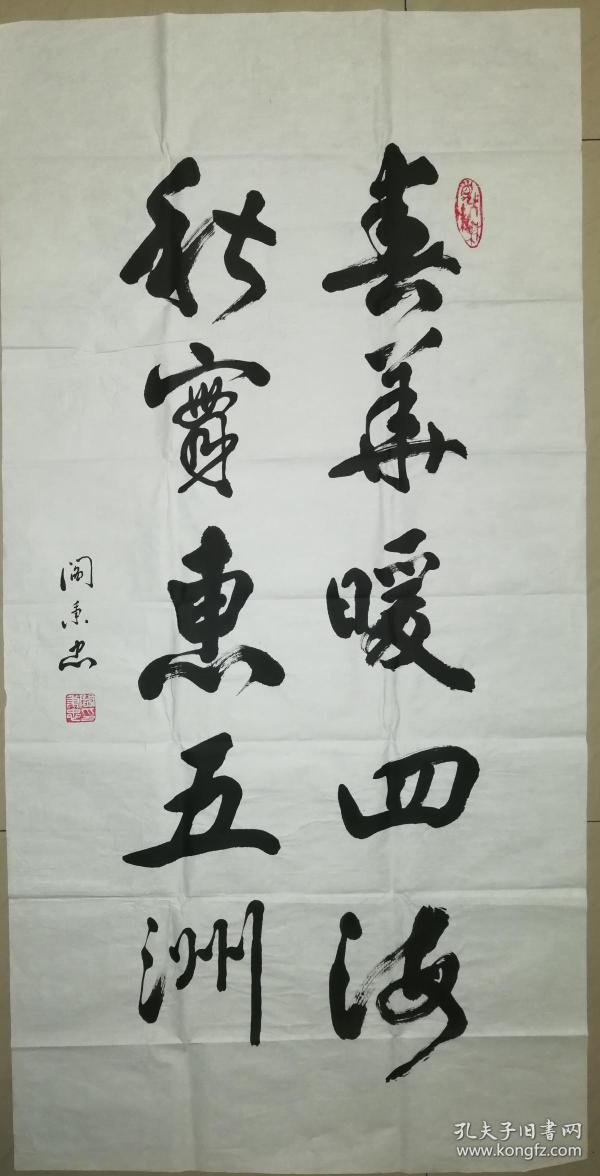 春華暖四海
秋實惠五洲
阚秉忠
孔夫子旧书网
www.kongfz.com